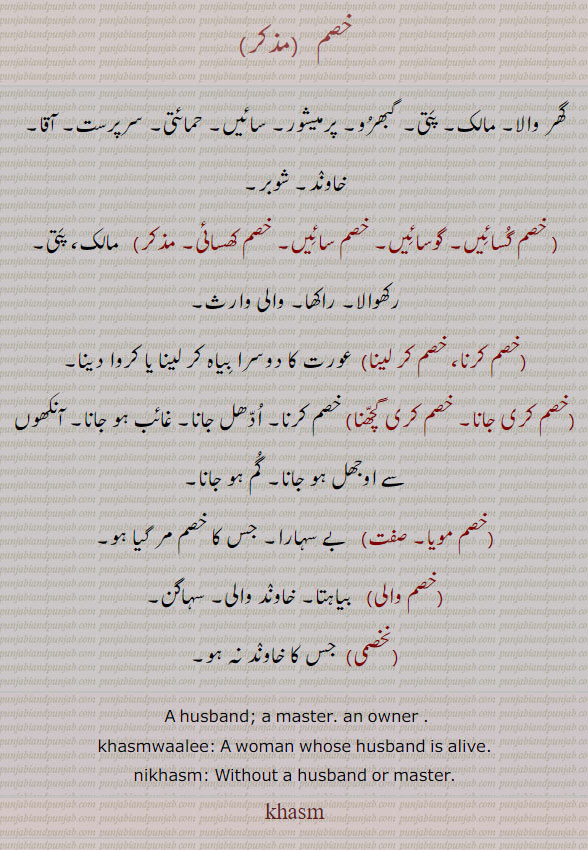 خصم (مذکر)
گھر والا۔ مالک۔ پَتی۔ گبھرُو۔ پرمیشور۔ سائیں۔ حمائتی۔ سرپرست۔ آقا۔
خاونْد۔ شوہر۔
(خصم گُسائِیں۔ گوسائِیں۔ خصم سائِیں۔ خصم کھسائی۔ مذکر) مالک، پَتی۔
رکھوالا۔ راکھا۔ والی وارث۔
(خصم کرنا، خصم کر لینا) عورت کا دوسرا بِیاہ کر لینا یا کروا دینا۔
(خصم کری جانا۔ خصم کری گچّھنا) خصم کرنا۔ اُدّھل جانا۔ غائب ہو جانا۔ آنکھوں
سے اوجھل ہو جانا۔ گُم ہو جانا۔
(خصم مویا۔ صفت) بے سہارا۔ جس کا خصم مر گیا ہو۔
(خصم والی) بیاہتا۔ خاونْد والی۔ سہاگن۔
(نخصمی) جس کا خاونْد نہ ہو۔
A husband; a master. an owner .
khasmwaalee: A woman whose husband is alive.
nikhasm: Without a husband or master.
khasm